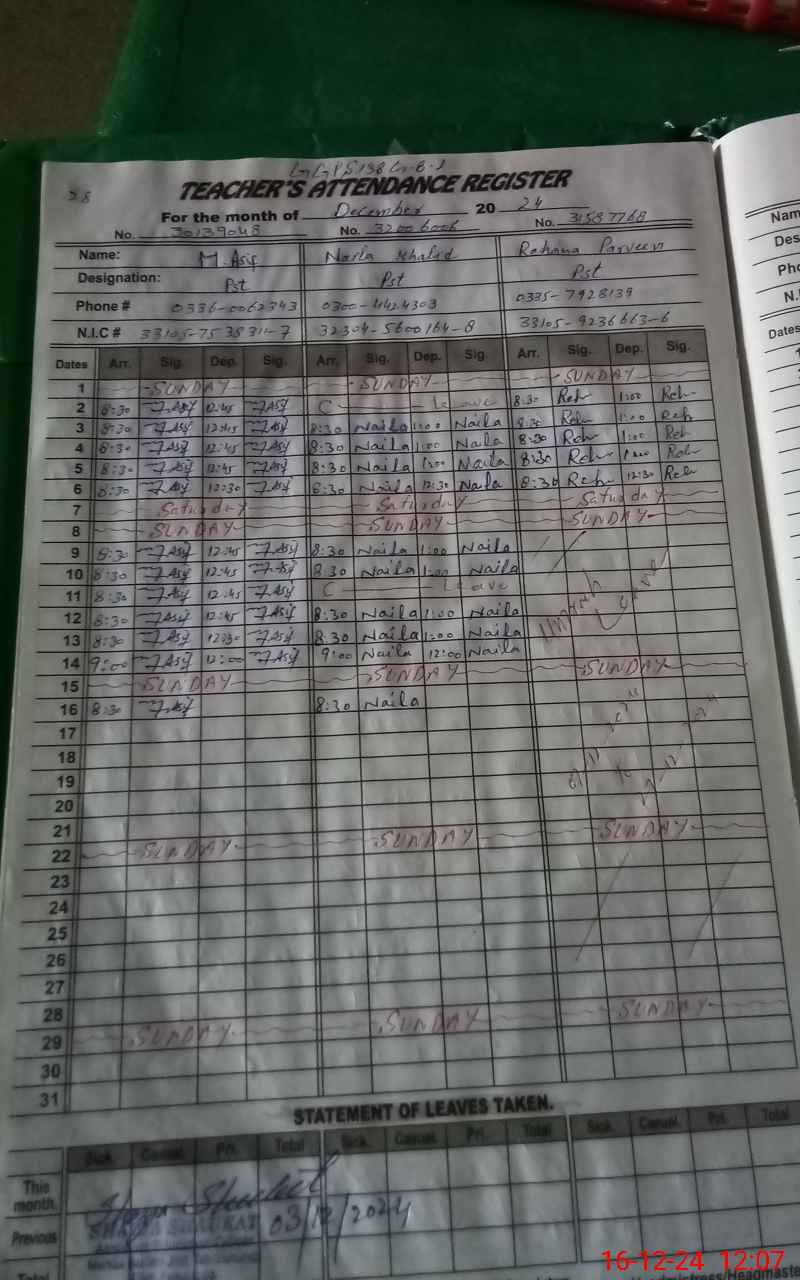 GGPS 138 G-B-1
TEACHER'S ATTENDANCE REGISTER
For the month of December 20 24
No. 30139048 No. 32006006 No. 31587768
Name: M. Asif Naila Khalid Rehana Parveen
Designation: Pst Pst Pst
Phone # 0336-0062343 0300-4424303 0335-7928139
N.I.C # 33105-7535311-7 32304-5600164-8 33105-9236663-6
Dates Arr. Sig. Dep. Sig. Arr. Sig. Dep. Sig. Arr. Sig. Dep. Sig.
1 SUNDAY SUNDAY SUNDAY
2 8:30 Asif 12:45 Asif C Leave 8:30 Reh 1:00 Reh
3 8:30 Asif 12:45 Asif 8:30 Naila 1:00 Naila 8:30 Reh 1:00 Reh
4 8:30 Asif 12:45 Asif 8:30 Naila 1:00 Naila 8:30 Reh 1:00 Reh
5 8:30 Asif 12:45 Asif 8:30 Naila 1:00 Naila 8:30 Reh 1:00 Reh
6 8:30 Asif 12:30 Asif 8:30 Naila 12:30 Naila 8:30 Reh 12:30 Reh
7 Saturday Saturday Saturday
8 SUNDAY SUNDAY SUNDAY
9 8:30 Asif 12:45 Asif 8:30 Naila 1:00 Naila
10 8:30 Asif 12:45 Asif 8:30 Naila 1:00 Naila
11 8:30 Asif 12:45 Asif C Leave
12 8:30 Asif 12:45 Asif 8:30 Naila 1:00 Naila Leave
13 8:30 Asif 12:30 Asif 8:30 Naila 1:00 Naila
14 9:00 Asif 12:00 Asif 9:00 Naila 12:00 Naila
15 SUNDAY SUNDAY SUNDAY
16 8:30 Asif 8:30 Naila
17
18
19 to
20
21
22 SUNDAY SUNDAY SUNDAY
23
24
25
26
27
28
29 SUNDAY SUNDAY SUNDAY
30
31
STATEMENT OF LEAVES TAKEN.
Sick. Casual. Pri. Total Sick. Casual. Pri. Total Sick. Casual. Pri. Total
This
month.
Previous
03/12/2024
SHAZIA SHAUKAT
Total
16-12-24 12:07
Nam
Des
Pho
N.I.
Dates